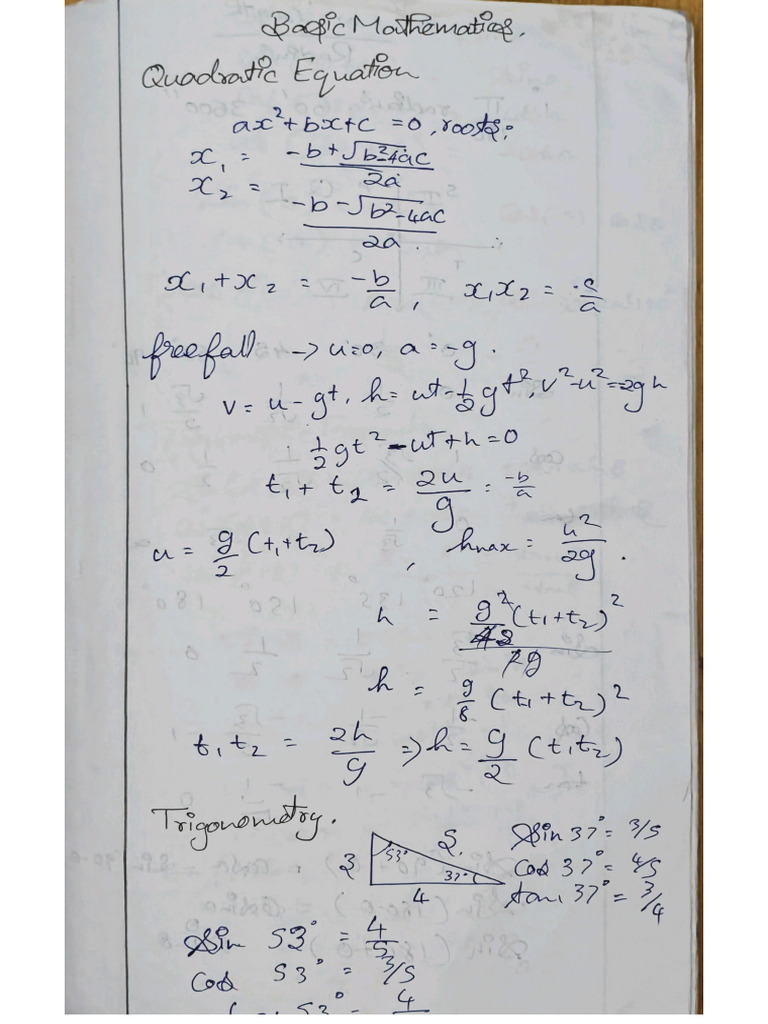 Basic Mathematics.
Quadratic Equation
ax²+bx+c =0, roots:
x₁ = (-b+√(b²-4ac))/2a
x₂ = (-b-√(b²-4ac))/2a
x₁+x₂ = -b/a, x₁x₂ = c/a
freefall → u=0, a=-g.
v= u-gt, h= ut-½gt², v²-u²=-2gh
½gt²-ut+h=0
t₁+t₂ = 2u/g = -b/a
u = g/2 (t₁+t₂), hmax = u²/2g.
h = g² (t₁+t₂)² / 2g
h = g/8 (t₁+t₂)²
t₁t₂ = 2h/g ⇒ h = g/2 (t₁t₂)
Trigonometry.
3 53° 5 37° 4
Sin 37° = 3/5
Cos 37° = 4/5
tan 37° = 3/4
Sin 53° = 4/5
Cos 53° = 3/5
53° = 4